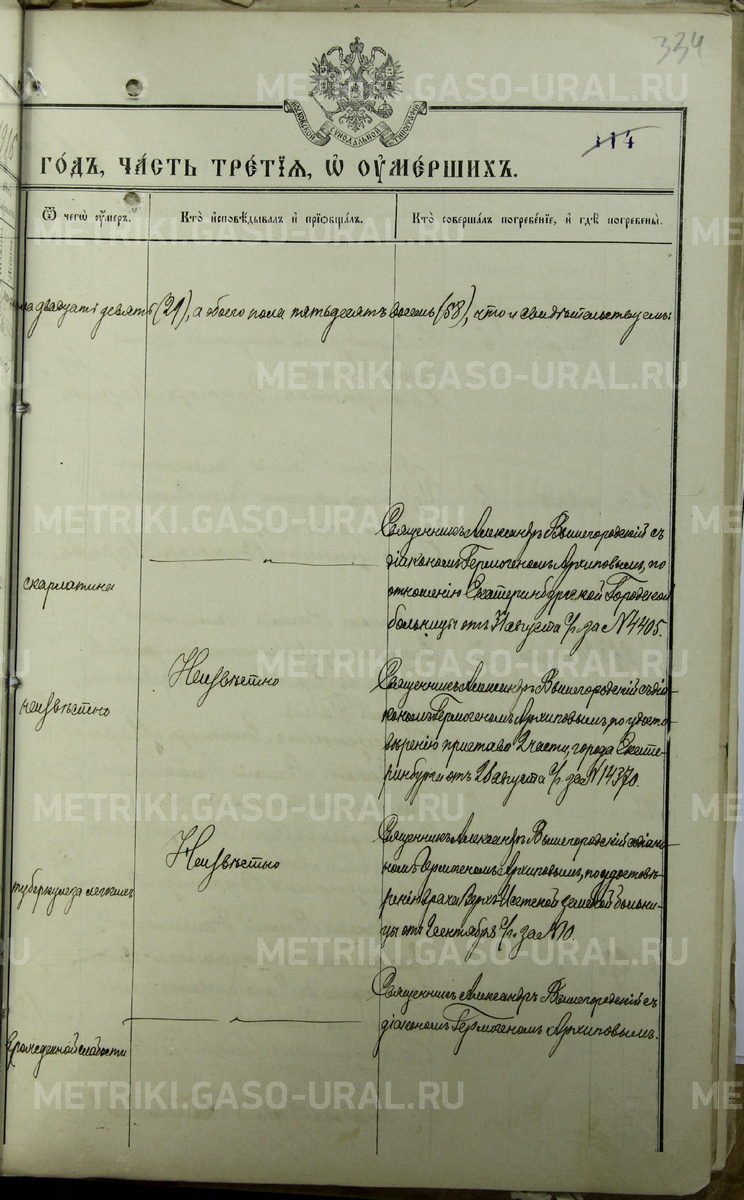 334
114
МОСКОВСКОЙ СѴНОДАЛЬНОЙ ТИПОГРАФІИ
METRIKI.GASO-URAL.RU
ГОДЪ, ЧАСТЬ ТРЕТІЯ, Ѡ ОУМЕРШИХЪ.
Ѿ чегѡ оумеръ.
Кто исповѣдывалъ и пріобщалъ.
Кто совершалъ погребеніе, и гдѣ погребены.
двадцать девять (29), а обоего пола пятьдесятъ восемь (58), что и свидѣтельствуемъ:
скарлатина
Священникъ Александръ Вышегородский съ
діакономъ Гермогеномъ Архиповымъ, по
отношенію Екатеринбургской Городской
больницы отъ 31 августа с/г. за № 4405.
неизвѣстно
Неизвѣстно
Священникъ Александръ Вышегородский съ діа-
кономъ Гермогеномъ Архиповымъ, по удосто-
вѣренію пристава 2 части, города Екате-
ринбурга отъ 28 августа с/г. за № 14370.
туберкулеза легкихъ
Неизвѣстно
Священникъ Александръ Вышегородский съ діако-
номъ Гермогеномъ Архиповымъ, по удостовѣ-
ренію врача Верхъ-Исетской земской больни-
цы отъ 2 сентября с/г. за № 10.
врожденной слабости
Священникъ Александръ Вышегородский съ
діакономъ Гермогеномъ Архиповымъ.